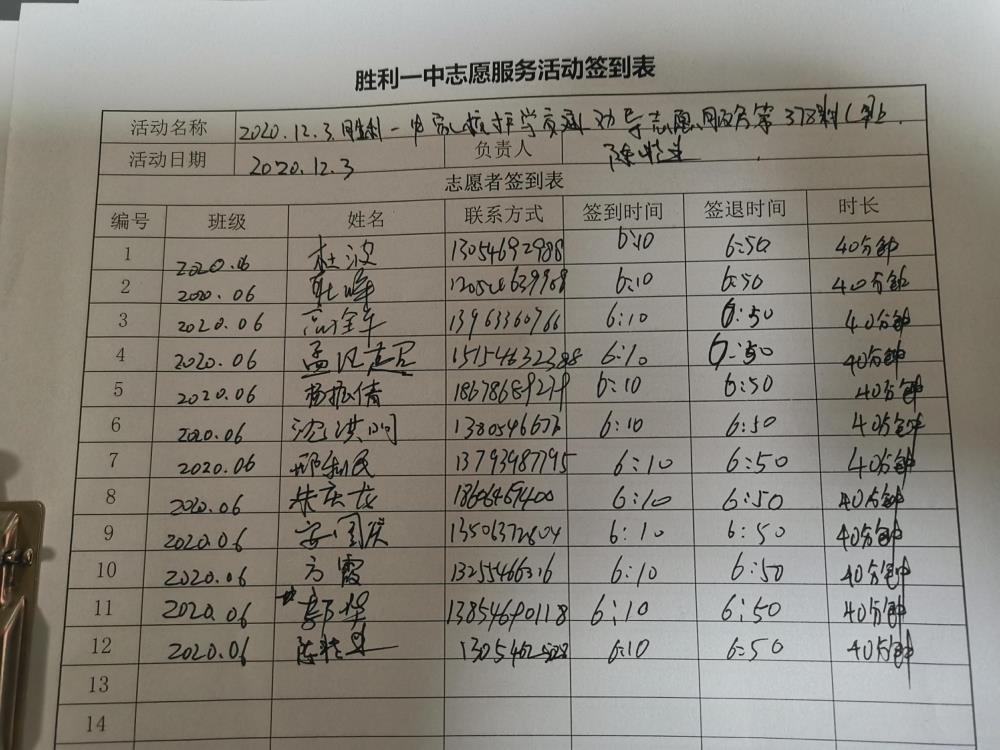 胜利一中志愿服务活动签到表
活动名称 2020.12.3.胜利一中 护学交通劝导志愿服务第378
活动日期 2020.12.3 负责人
志愿者签到表
编号 班级 姓名 联系方式 签到时间 签退时间 时长
1 2020.06 杜波 13054692988 6:10 6:50 40分钟
2 2020.06 6:10 6:50 40分钟
3 2020.06 13963360766 6:10 6:50 40分钟
4 2020.06 6:10 6:50 40分钟
5 2020.06 18678689279 6:10 6:50 40分钟
6 2020.06 沈洪明 6:10 6:50 40分钟
7 2020.06 邢利民 13793987795 6:10 6:50 40分钟
8 2020.06 朱庆龙 18606469400 6:10 6:50 40分钟
9 2020.06 13506372604 6:10 6:50 40分钟
10 2020.06 方霞 6:10 6:50 40分钟
11 2020.06 郭华 13854690118 6:10 6:50 40分钟
12 2020.06 6:10 6:50 40分钟
13
14